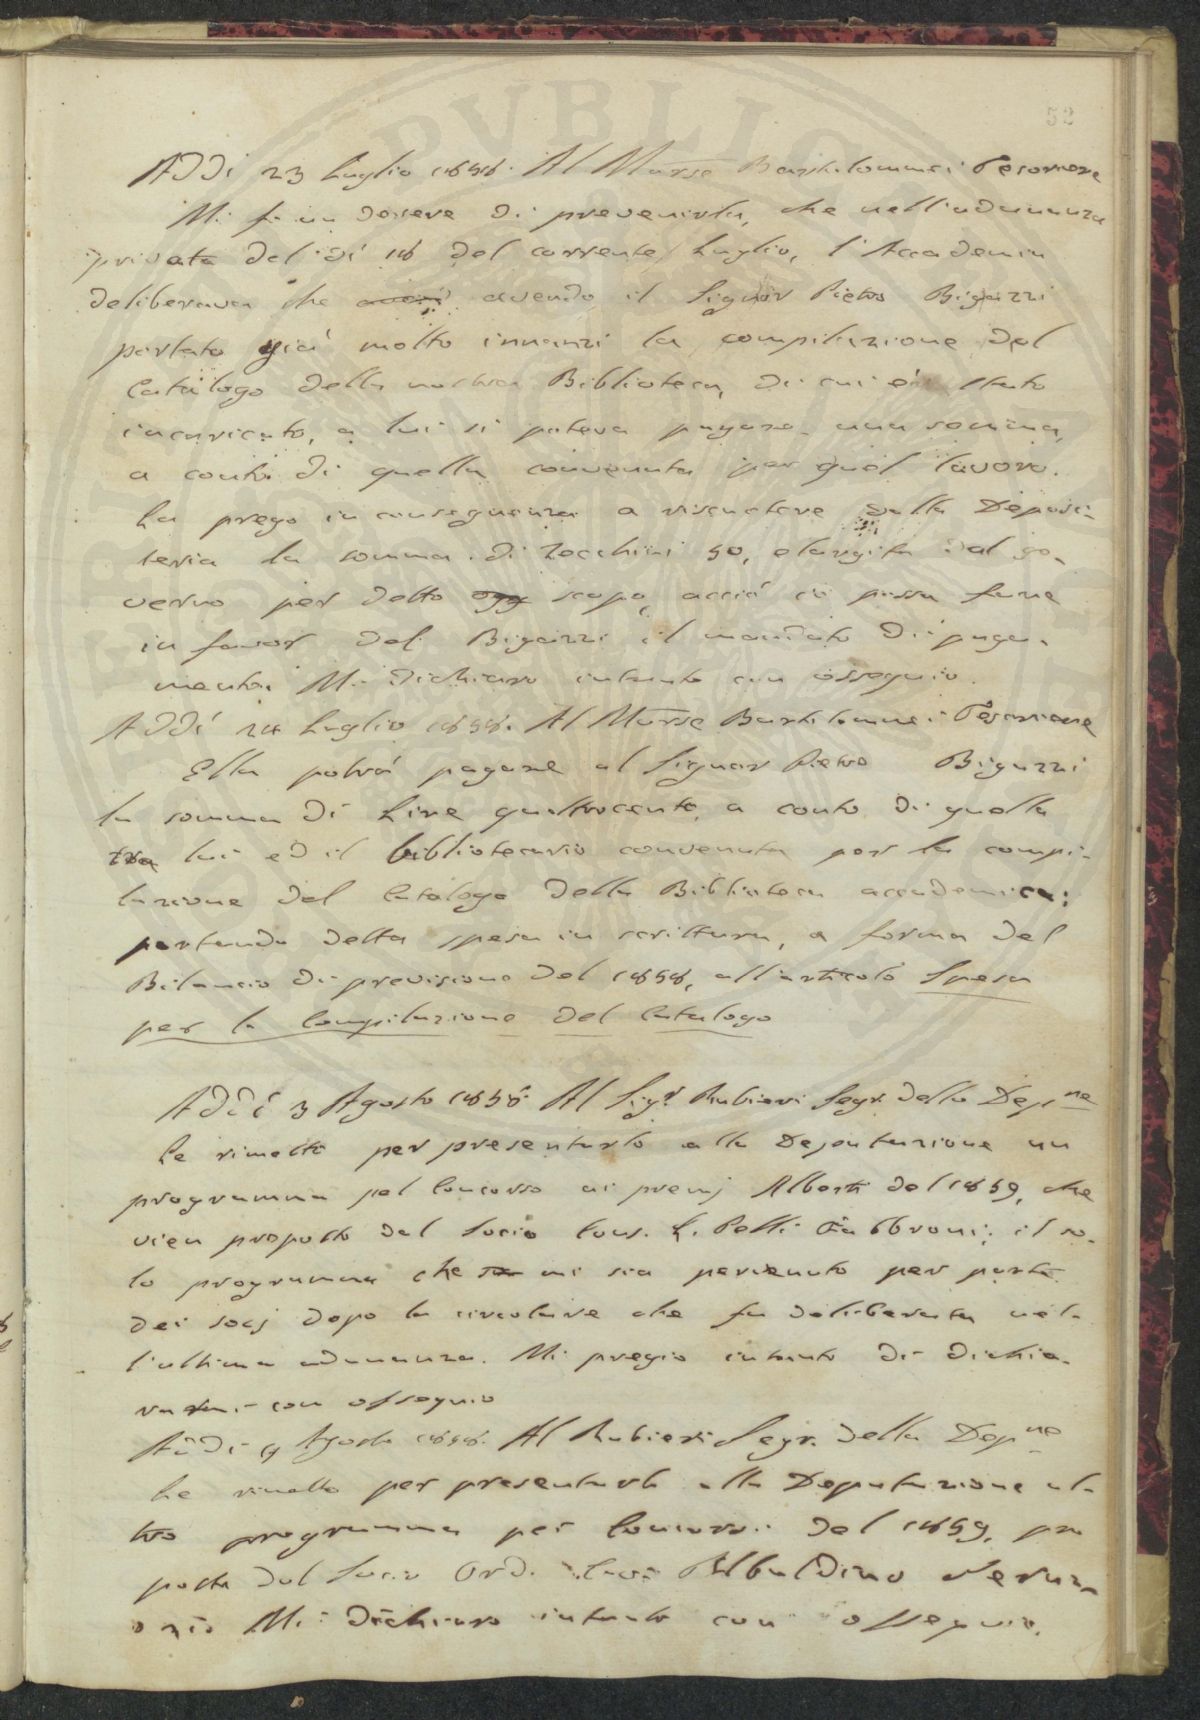 52
Addì 23 Luglio 1858. Al Marse Bartolommei Tesoriere
Mi fo un dovere di prevenirla, che nell'adunanza
privata del dì 18 del corrente Luglio, l'Accademia
deliberava che avendo il Signor Pietro Bigazzi
portato già molto innanzi la compilazione del
Catalogo della nostra Biblioteca, di cui è stato
incaricato, a lui si poteva pagare una somma,
a conto di quella convenuta per quel lavoro.
La prego in conseguenza a riscuotere dalla Deposi-
teria la somma di Zecchini 50, elargita dal go-
verno per detto scopo, acciò io possa farne
in favor del Bigazzi il mandato di paga-
mento. Mi dichiaro intanto con ossequio.
Addì 24 Luglio 1858. Al Marse Bartolommei Tesoriere
Ella potrà pagare al Signor Pietro Bigazzi
la somma di Lire quattrocento, a conto di quella
tra lui ed il bibliotecario convenuta per la compi-
lazione del Catalogo della Biblioteca accademica;
portando detta spesa in scrittura, a forma del
Bilancio di previsione del 1858, all'articolo Spesa
per la Compilazione del Catalogo
Addì 3 Agosto 1858. Al Sigr. Rubieri Segr. della Depne
Le rimetto per presentarlo alla Deputazione un
programma pel Concorso ai premj Alberti del 1859, che
vien proposto dal Socio Cons. L. Pelli Fabbroni; il so-
lo programma che mi sia pervenuto per parte
dei socj dopo la circolare che fu deliberata nel-
l'ultima adunanza. Mi pregio intanto di dichia-
rarmi con ossequio
Addì 4 Agosto 1858. Al Rubieri Segr. della Depne
Le rimetto per presentarlo alla Deputazione al-
tro programma pei Concorsi del 1859, pro
posto dal Socio Ord. Ubaldino Peruzzi
Mi dichiaro intanto con ossequio.